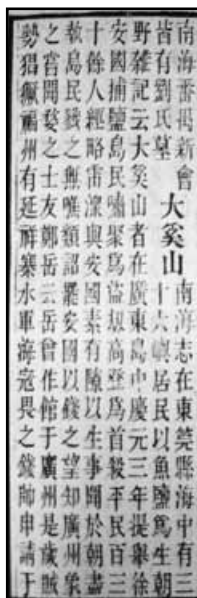 南海番禺新會
皆有劉氏墓
大奚山
南海志在東莞縣海中有三
十六嶼居民以魚鹽爲生朝
野雜記云大奚山者在廣東島中慶元三年提舉徐
安國捕鹽島民嘯聚爲盜刼高登爲首殺平民百三
十餘人經略雷潀與安國素有隙以生事聞於朝盡
執島民戮之無噍類詔罷安國以錢之望知廣州象
之甞聞婺之士友鄭岳云岳曾作館于廣州是歲賊
勢猖獗福州有延祥寨水軍海寇畏之錢帥申請于